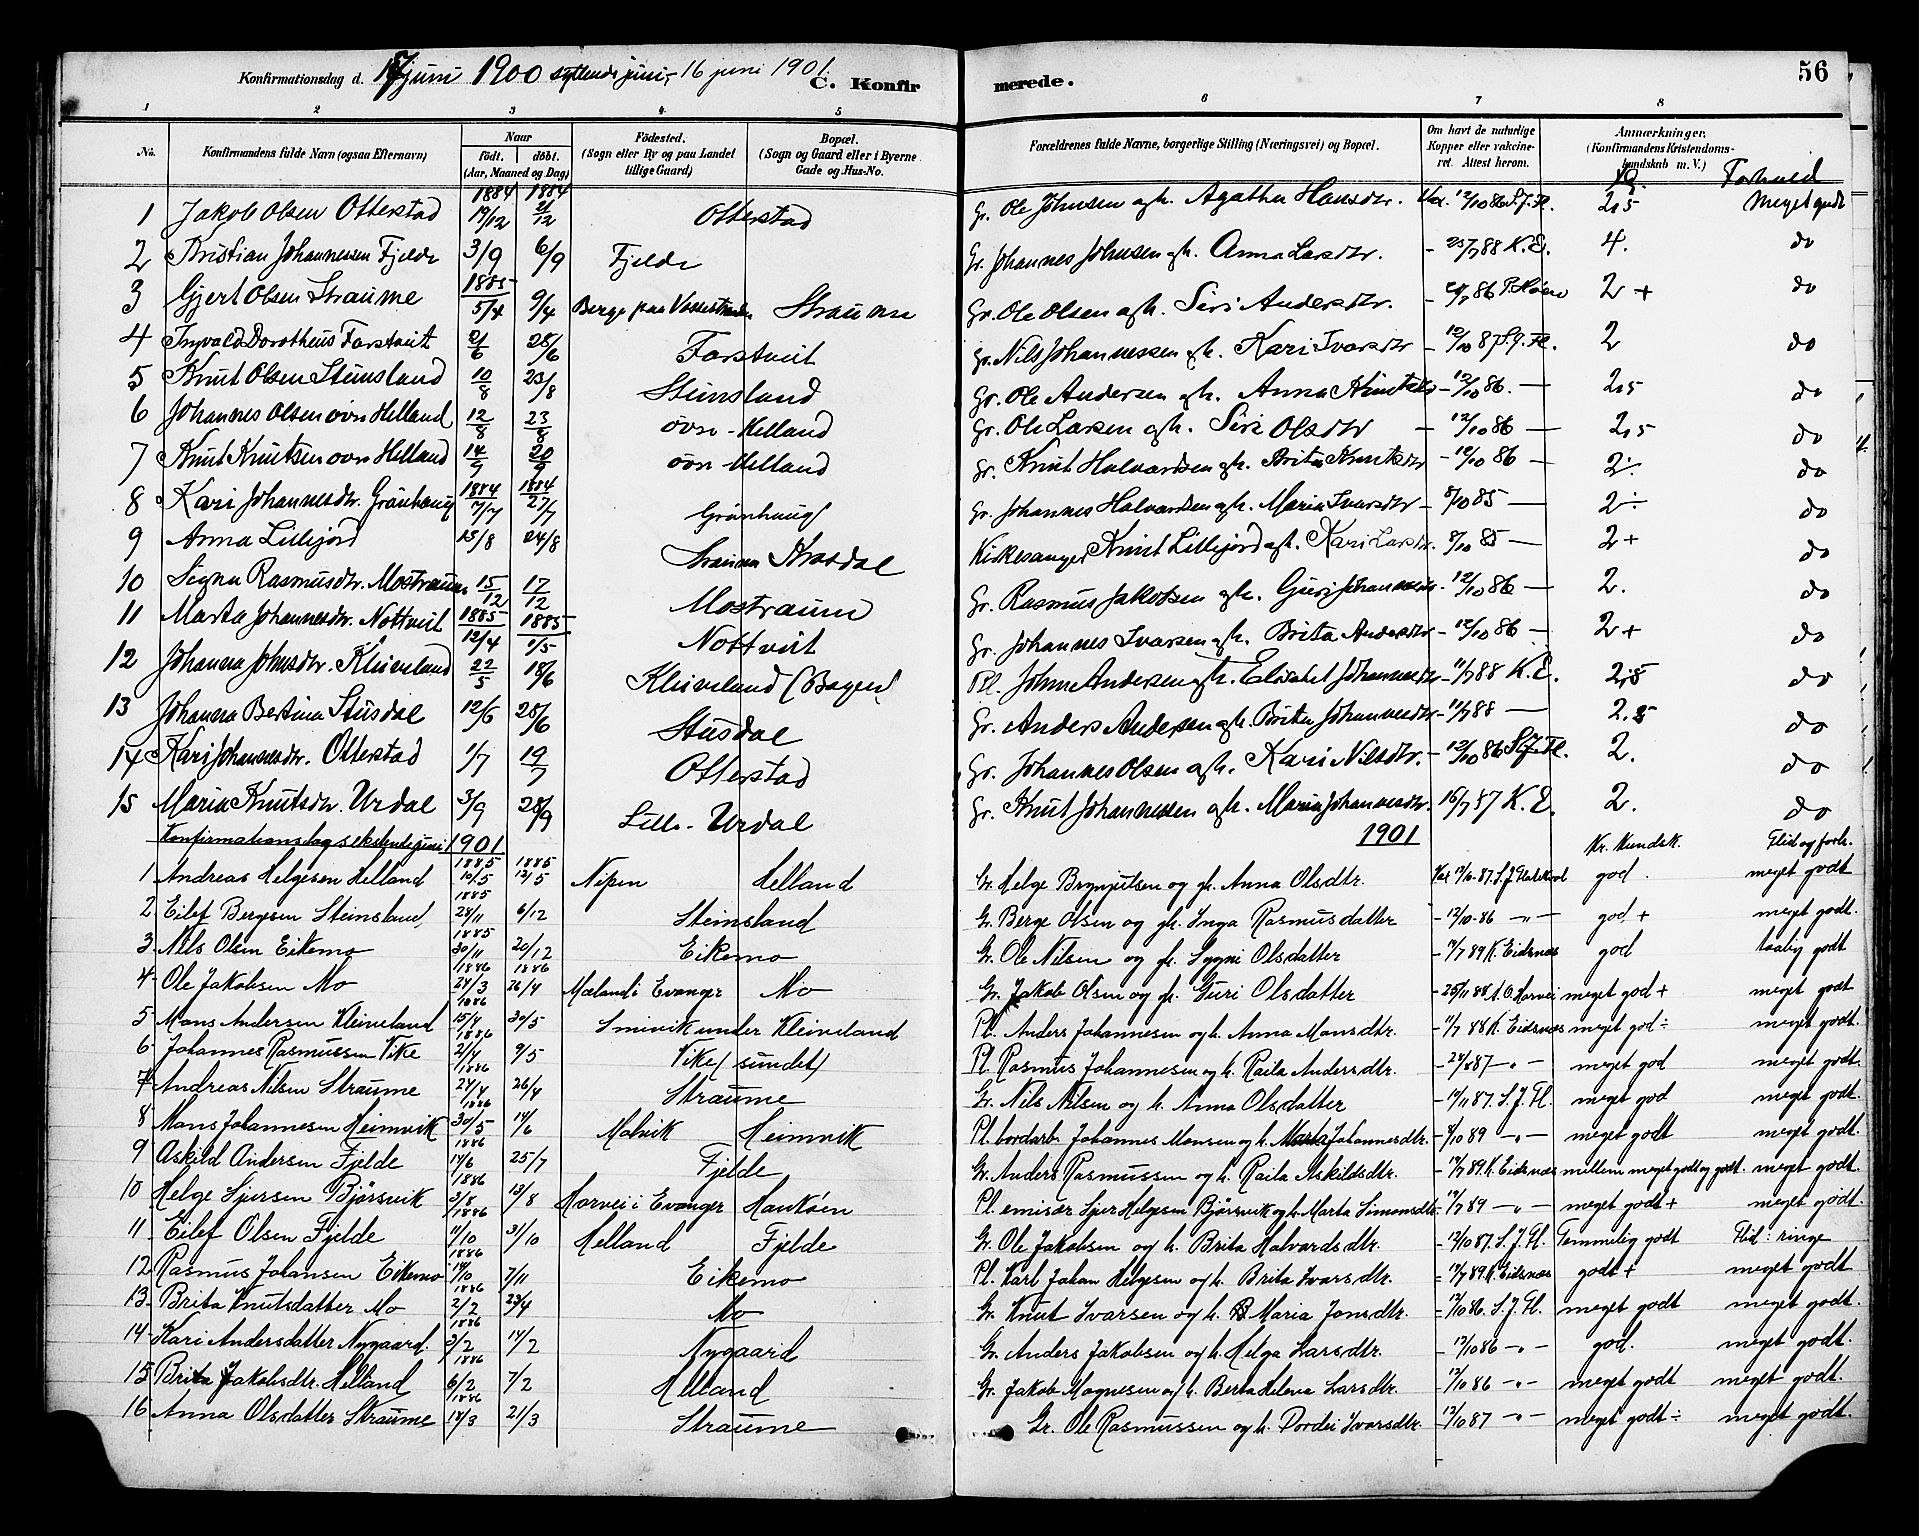 56
Konfirmationsdag d. 17 juni 1900 syttende juni, 16 juni 1901. C. Konfirmerede.
1 2 3 4 5 6 7 8
No. Konfirmandens fulde Navn (ogsaa Efternavn) Naar födt. döbt. (Aar, Maaned og Dag) Födested. (Sogn eller By og paa Landet tillige Gaard) Bopæl. (Sogn og Gaard eller i Byerne Gade og Hus-No. Forældrenes fulde Navne, borgerlige Stilling (Næringsvei) og Bopæl. Om havt de naturlige Kopper eller vakcineret. Attest herom. Anmærkninger. (Konfirmandens Kristendomskundskab m. V.) Forhold
1 Jakob Olsen Otterstad 1884 19/12 1884 21/12 Otterstad Gr. Ole Johnsen og h. Agatha Hansdtr. Vax. 12/10 86 S.J.Fl. 2,5 Meget godt
2 Kristian Johannessen Fjelde 3/9 6/9 Fjelde Gr. Johannes Johnsen og h. Anna Larsdtr. - 23/7 88 K.E. 4. do
3 Gjert Olsen Straume 1885 5/4 9/4 Berge paa Vossestranden Straume Gr. Ole Olsen og h. Siri Andersdtr. 2+ do
4 Ingvald Dorotheus Farstveit 21/6 28/6 Farstveit Gr. Nils Johannessen og h. Kari Ivarsdtr - 12/10 87 S.J.Fl. 2 do
5 Knut Olsen Steinsland 10/8 23/8 Steinsland Gr. Ole Andersen og h. Anna Knutsdtr - 12/10 86. — 2,5 do
6 Johannes Olsen øvn Helland 12/8 23/8 øvn - Helland Gr. Ole Larsen og h. Siri Olsdtr - 12/10 86 — 2,5 do
7 Knut Knutsen øvn Helland 14/9 20/9 øvn - Helland Gr. Knut Halvardsen og h. Brita Knutsdtr - 12/10 86 — 2÷ do
8 Kari Johannesdtr. Grönhaug 1884 17/7 1884 27/7 Grönhaug Gr. Johannes Halvardsen og h. Maria Ivarsdtr - 8/10 85 — 2÷ do
9 Anna Lillejord 15/8 24/8 Kirkesanger Knut Lillejord og h. Kari Larsdtr. 8/10 85 — 2+ do
10 Signe Rasmusdtr. Mostraum 15/12 17/12 Mostraum Gr. Rasmus Jakobsen og h. Guri Johannesdtr - 12/10 86 — 2. do
11 Marta Johannesdtr. Nottveit 1885 12/4 1885 1/5 Nottveit Gr. Johannes Ivarsen og h. Brita Andersdtr - 12/10 86 — 2+ do
12 Johanna Johnsdtr. Kleiveland 22/5 18/6 Kleiveland (Bogen) Pl. John Andersen og h. Elisabet Johannesdtr - 11/7 88 K.E. 2,5 do
13 Johanna Bertina Stusdal 12/6 28/6 Stusdal Gr. Anders Andersen og h. Brita Johannesdtr - 11/7 88 — 2.5 do
14 Kari Johannesdtr. Otterstad 1/7 19/7 Otterstad Gr. Johannes Olsen og h. Kari Nilsdtr. - 12/10 86 S.J.Fl. 2. do
15 Maria Knutsdtr. Urdal 3/9 28/9 Lille - Urdal Gr. Knut Johannessen og h. Maria Johannesdtr. 16/7 87 K.E. 2. do
Konfirmationsdag sekstende juni 1901 1901 Kr. Kundsk. Flid og forh.
1 Andreas Helgesen Helland 1885 10/5 1885 12/5 Nipen Helland Gr. Helge Brynjulsen og h. Anna Olsdtr. god. meget godt
2 Eilef Bergesen Steinsland 1885 24/11 6/12 Steinsland Gr. Berge Olsen og h. Inga Rasmusdatter - 12/10 86 -"- god + meget godt.
3 Nils Olsen Eikemo 1885 30/11 20/12 Eikemo Gr. Ole Nilsen og h. Sygni Olsdatter - 11/7 89 K. Eidsnæs god taalig godt
4 Ole Jakobsen Mo 1886 24/3 1886 26/4 Mæland i Evanger Mo Gr. Jakob Olsen og h. Guri Olsdatter - 25/11 88 meget god + meget godt
5 Mons Andersen Kleiveland 1886 15/4 30/5 Smivik under Kleiveland Pl. Anders Johannesen og h. Anna Monsdtr. - 11/7 88 K. Eidsnæs meget god ÷ meget godt.
6 Johannes Rasmussen Vike 1886 21/4 9/5 Vike (sundet) Pl. Rasmus Johannesen og h. Raila Andersdtr. -"- meget god meget godt.
7 Andreas Nilsen Straume 1886 24/4 26/4 Straume Gr. Nils Nilsen og h. Anna Olsdatter - 14/11 87. S.J.Fl. meget god meget godt.
8 Mons Johannesen Heimvik 1886 30/5 14/6 Molvik Heimvik Pl. bordarb. Johannes Monsen og h. Marta Johannesdtr. - 8/10 89 -"- meget godt meget godt.
9 Askild Andersen Fjelde 1886 14/6 25/7 Fjelde Gr. Anders Rasmussen og h. Raila Askildsdtr. - 11/7 89 K. Eidsnæs mellem meget godt og godt. meget godt.
10 Helge Sjursen Bjørsvik 1886 3/8 13/8 Horvei i Evanger Haukøen Pl. emisær Sjur Helgesen Bjørsvik og h. Marta Simonsdtr. 11/7 89 -"- meget godt + meget godt.
11 Eilef Olsen Fjelde 1886 11/10 31/10 Helland Fjelde Gr. Ole Jakobsen og h. Brita Halvardsdtr. - 12/10 87. S.J.Fl. Temmelig godt Flid: ringe
12 Rasmus Johansen Eikemo 1886 14/10 7/11 Eikemo Pl. Karl Johan Helgesen og h. Brita Ivarsdtr. - 11/7 89 K. Eidsnæs godt + meget godt
13 Brita Knutsdatter Mo 1886 2/2 23/4 Mo Gr. Knut Ivarsen og h. Maria Jonsdtr. - 12/10 86. S.J.Fl. meget godt meget godt.
14 Kari Andersdatter Nygaard. 1886 3/2 14/2 Nygaard Gr. Anders Jakobsen og h. Helga Larsdtr. - 12/10 86 -"- god. meget godt.
15 Brita Jakobsdtr. Helland 1886 6/2 7/2 Helland Gr. Jakob Magnesen og h. Berta Helena Larsdtr. - 12/10 86 -"- meget godt meget godt.
16 Anna Olsdatter Straume 18/3 21/3 Straume Gr. Ole Rasmussen og h. Dordei Ivarsdtr. - 12/10 87 -"- meget godt ÷ meget godt.